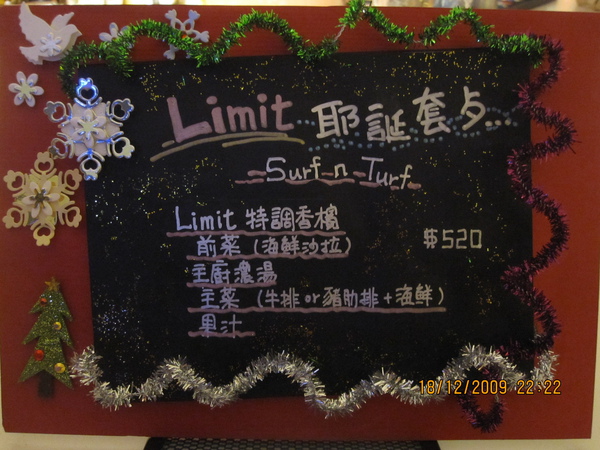 Limit 耶誕套夕...
Surf n Turf
Limit 特調香檳
前菜 (海鮮沙拉)
$520
主廚濃湯
主菜 (牛排 or 豬肋排 + 海鮮)
果汁
18/12/2009 22:22